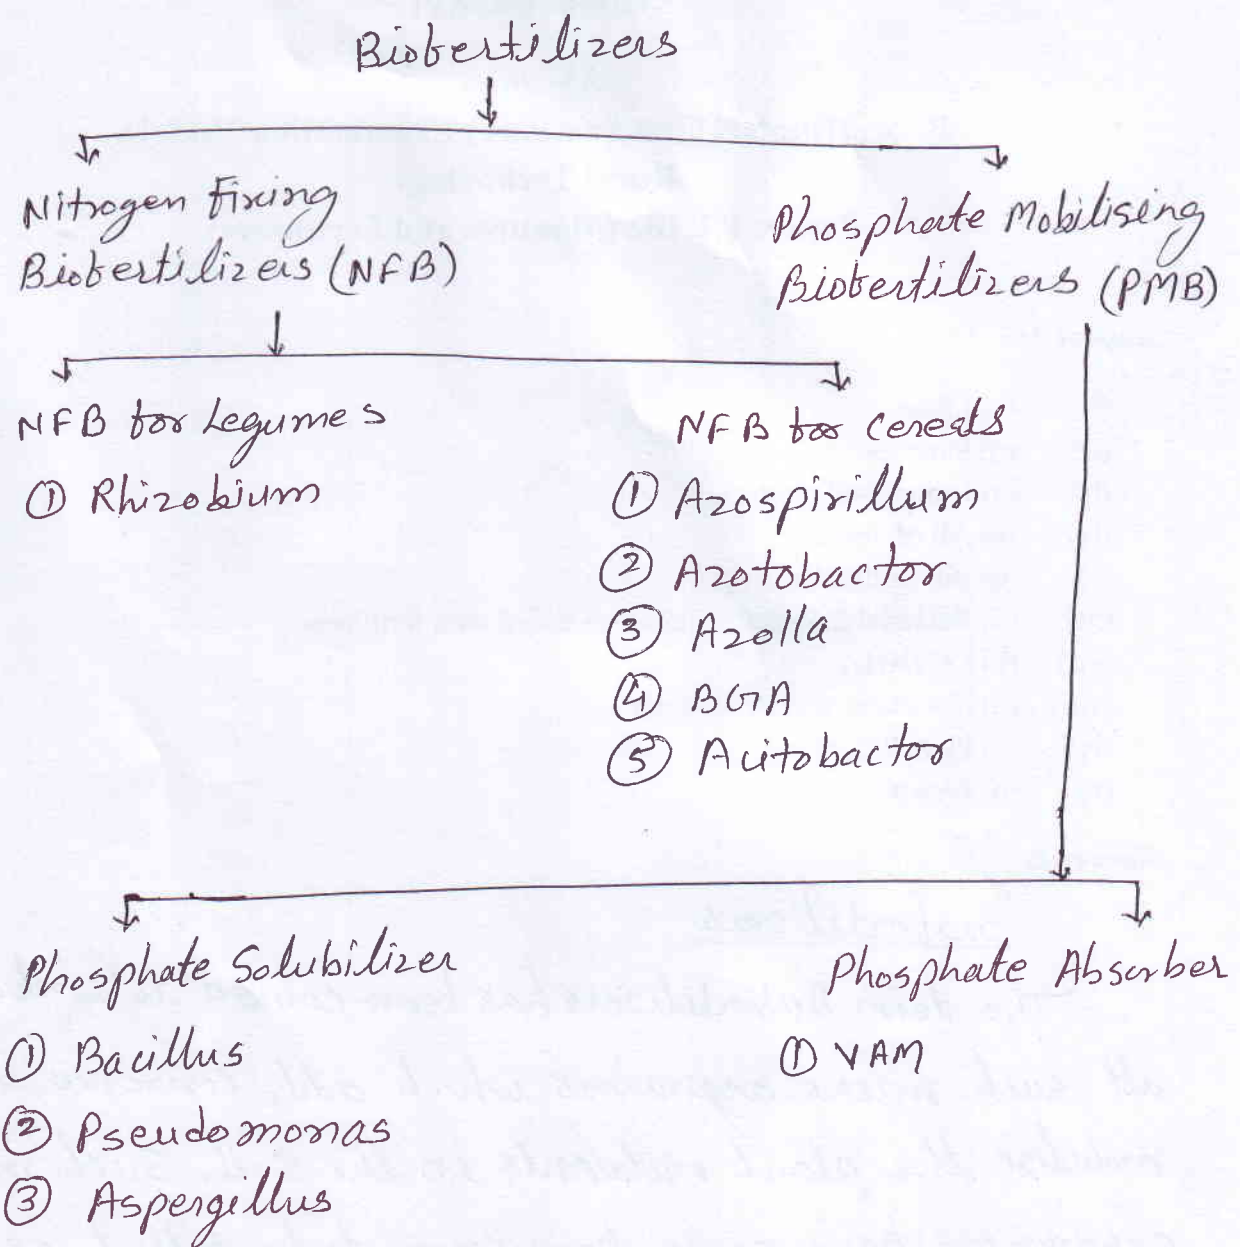 Biofertilizers
Nitrogen Fixing
Biofertilizers (NFB)
Phosphate Mobilising
Biofertilizers (PMB)
NFB for Legumes
① Rhizobium
NFB for cereals
① Azospirillum
② Azotobactor
③ Azolla
④ BGA
⑤ Acitobactor
Phosphate Solubilizer
① Bacillus
② Pseudomonas
③ Aspergillus
Phosphate Absorber
① VAM